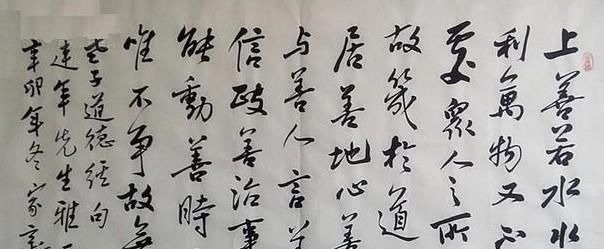 上善若水水
利萬物又不
處眾人之所
故幾於道
居善地心善
与善人言善
信政善治事
能動善時
唯不争故無
老子道德經句
建年先生雅
辛卯年冬家